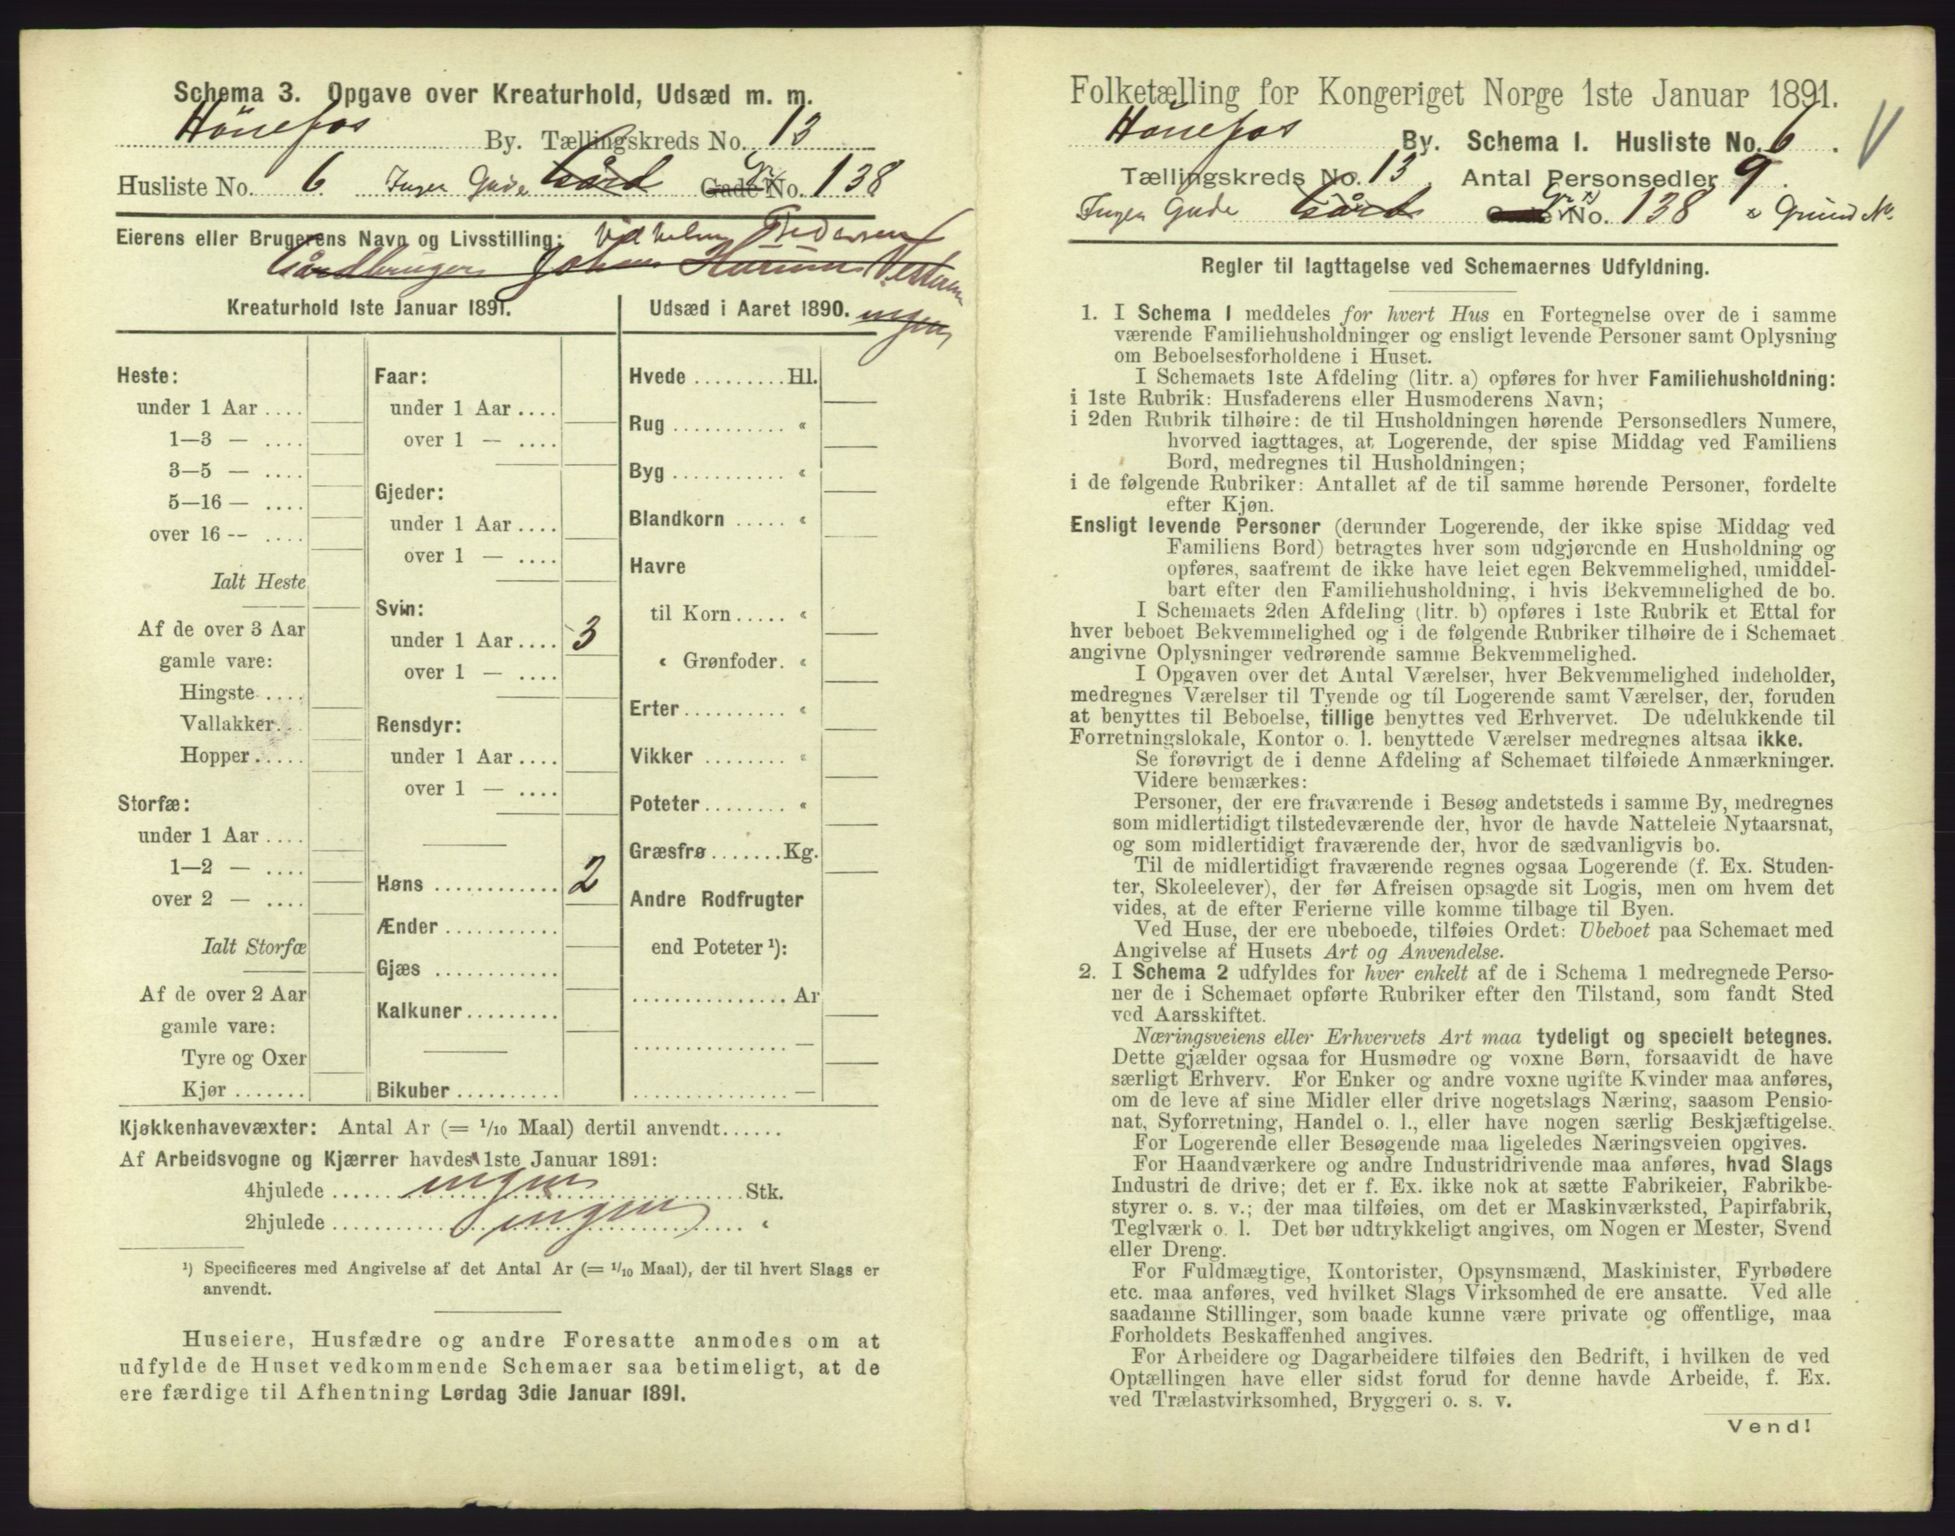 Schema 3. Opgave over Kreaturhold, Udsæd m. m.
Hönefos By. Tællingskreds No. 13
Husliste No. 6 Ingen Gade Gård Gade Gr No. 138
Eierens eller Brugerens Navn og Livsstilling: Vilhelm Pedersen
Gårdbruger Johan
Kreaturhold 1ste Januar 1891.
Udsæd i Aaret 1890. ingen
Heste:
under 1 Aar ....
1—3 — ....
3—5 — ....
5—16 — ....
over 16 — ....
Ialt Heste
Af de over 3 Aar
gamle vare:
Hingste ....
Vallakker...
Hopper.....
Storfæ:
under 1 Aar ....
1—2 — ....
over 2 — ....
Ialt Storfæ
Af de over 2 Aar
gamle vare:
Tyre og Oxer
Kjør .......
Faar:
under 1 Aar ....
over 1 — ....
Gjeder:
under 1 Aar ....
over 1 — ....
Svin:
under 1 Aar .... 3
over 1 — ....
Rensdyr:
under 1 Aar ....
over 1 — ....
Høns ............ 2
Ænder ...........
Gjæs ............
Kalkuner.........
Bikuber ..........
Hvede ......... Hl.
Rug ........... «
Byg ........... «
Blandkorn ..... «
Havre
til Korn..... «
« Grønfoder. «
Erter.......... «
Vikker ........ «
Poteter........ «
Græsfrø.......Kg.
Andre Rodfrugter
end Poteter ¹):
............... Ar
............... —
............... —
Kjøkkenhavevæxter: Antal Ar (= 1/10 Maal) dertil anvendt......
Af Arbeidsvogne og Kjærrer havdes 1ste Januar 1891:
4hjulede ...... ingen ...... Stk.
2hjulede ...... ingen ...... «
¹) Specificeres med Angivelse af det Antal Ar (= 1/10 Maal), der til hvert Slags er
anvendt.
Huseiere, Husfædre og andre Foresatte anmodes om at
udfylde de Huset vedkommende Schemaer saa betimeligt, at de
ere færdige til Afhentning Lørdag 3die Januar 1891.
Folketælling for Kongeriget Norge 1ste Januar 1891.
Hönefos By. Schema 1. Husliste No. 6.
Tællingskreds No. 13 Antal Personsedler 9.
Ingen Gade Gård Gade Gr No. 138 Grund No.
Regler til Iagttagelse ved Schemaernes Udfyldning.
1. I Schema 1 meddeles for hvert Hus en Fortegnelse over de i samme
værende Familiehusholdninger og ensligt levende Personer samt Oplysning
om Beboelsesforholdene i Huset.
I Schemaets 1ste Afdeling (litr. a) opføres for hver Familiehusholdning:
i 1ste Rubrik: Husfaderens eller Husmoderens Navn;
i 2den Rubrik tilhøire: de til Husholdningen hørende Personsedlers Numere,
hvorved iagttages, at Logerende, der spise Middag ved Familiens
Bord, medregnes til Husholdningen;
i de følgende Rubriker: Antallet af de til samme hørende Personer, fordelte
efter Kjøn.
Ensligt levende Personer (derunder Logerende, der ikke spise Middag ved
Familiens Bord) betragtes hver som udgjørende en Husholdning og
opføres, saafremt de ikke have leiet egen Bekvemmelighed, umiddel-
bart efter den Familiehusholdning, i hvis Bekvemmelighed de bo.
I Schemaets 2den Afdeling (litr. b) opføres i 1ste Rubrik et Ettal for
hver beboet Bekvemmelighed og i de følgende Rubriker tilhøire de i Schemaet
angivne Oplysninger vedrørende samme Bekvemmelighed.
I Opgaven over det Antal Værelser, hver Bekvemmelighed indeholder,
medregnes Værelser til Tyende og til Logerende samt Værelser, der, foruden
at benyttes til Beboelse, tillige benyttes ved Erhvervet. De udelukkende til
Forretningslokale, Kontor o. l. benyttede Værelser medregnes altsaa ikke.
Se forøvrigt de i denne Afdeling af Schemaet tilføiede Anmærkninger.
Videre bemærkes:
Personer, der ere fraværende i Besøg andetsteds i samme By, medregnes
som midlertidigt tilstedeværende der, hvor de havde Natteleie Nytaarsnat,
og som midlertidigt fraværende der, hvor de sædvanligvis bo.
Til de midlertidigt fraværende regnes ogsaa Logerende (f. Ex. Studen-
ter, Skoleelever), der før Afreisen opsagde sit Logis, men om hvem det
vides, at de efter Ferierne ville komme tilbage til Byen.
Ved Huse, der ere ubeboede, tilføies Ordet: Ubeboet paa Schemaet med
Angivelse af Husets Art og Anvendelse.
2. I Schema 2 udfyldes for hver enkelt af de i Schema 1 medregnede Perso-
ner de i Schemaet opførte Rubriker efter den Tilstand, som fandt Sted
ved Aarsskiftet.
Næringsveiens eller Erhvervets Art maa tydeligt og specielt betegnes.
Dette gjælder ogsaa for Husmødre og voxne Børn, forsaavidt de have
særligt Erhverv. For Enker og andre voxne ugifte Kvinder maa anføres,
om de leve af sine Midler eller drive nogetslags Næring, saasom Pensio-
nat, Syforretning, Handel o. l., eller have nogen særlig Beskjæftigelse.
For Logerende eller Besøgende maa ligeledes Næringsveien opgives.
For Haandværkere og andre Industridrivende maa anføres, hvad Slags
Industri de drive; det er f. Ex. ikke nok at sætte Fabrikeier, Fabrikbe-
styrer o. s. v.; der maa tilføies, om det er Maskinværksted, Papirfabrik,
Teglværk o. l. Det bør udtrykkeligt angives, om Nogen er Mester, Svend
eller Dreng.
For Fuldmægtige, Kontorister, Opsynsmænd, Maskinister, Fyrbødere
etc. maa anføres, ved hvilket Slags Virksomhed de ere ansatte. Ved alle
saadanne Stillinger, som baade kunne være private og offentlige, maa
Forholdets Beskaffenhed angives.
For Arbeidere og Dagarbeidere tilføies den Bedrift, i hvilken de ved
Optællingen have eller sidst forud for denne havde Arbeide, f. Ex.
ved Trælastvirksomhed, Bryggeri o. s. v.
Vend!